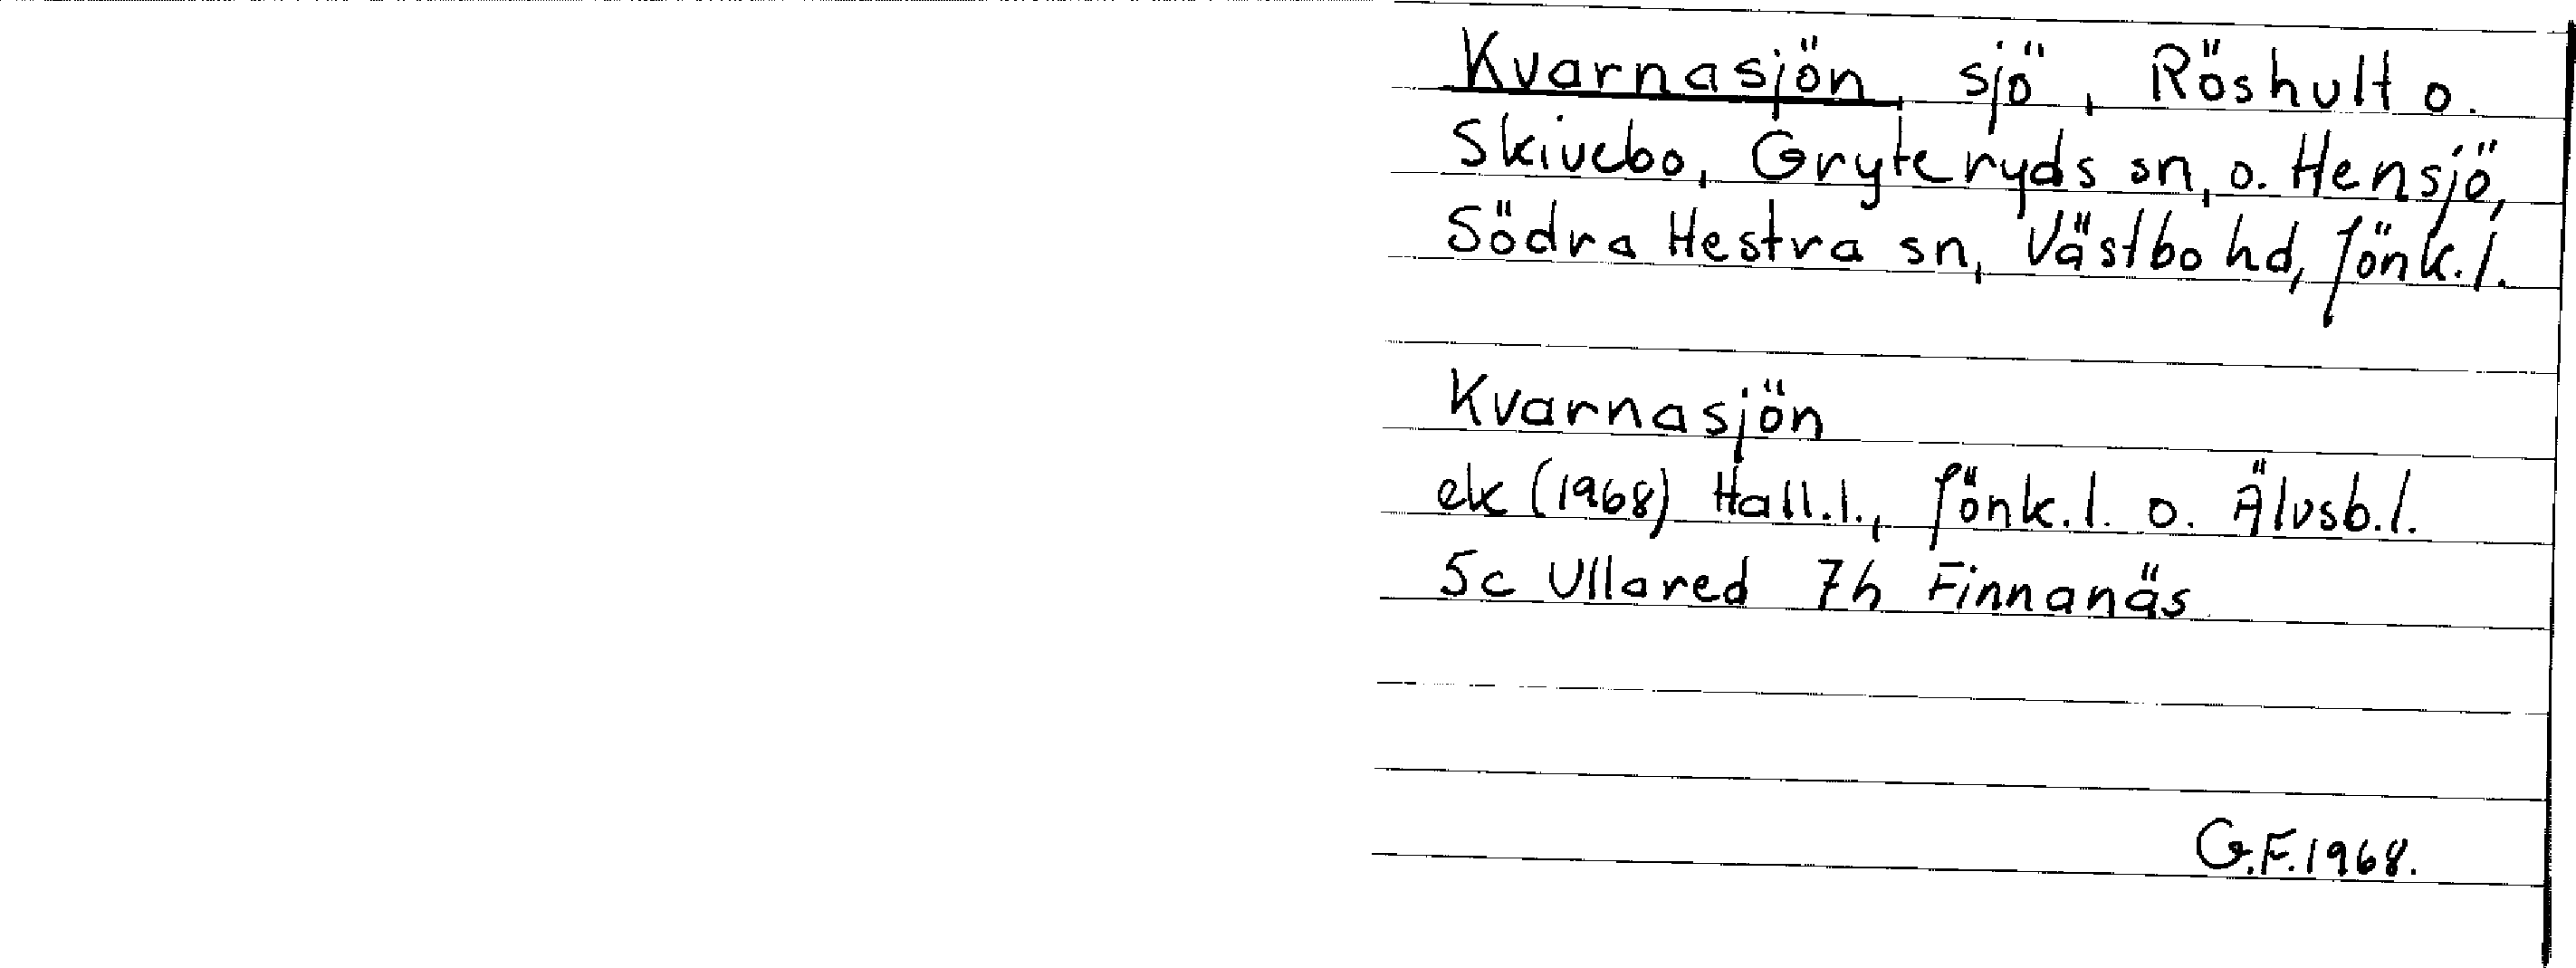 Kvarnasjön, sjö, Röshult o.
Skivebo, Gryteryds sn, o. Hensjö,
Södra Hestra sn, Västbo hd, Jönk.l.
Kvarnasjön
ek (1968) Hall.l., Jönk.l. o. Älvsb.l.
5c Ullared 7h Finnanäs
G.F.1968.